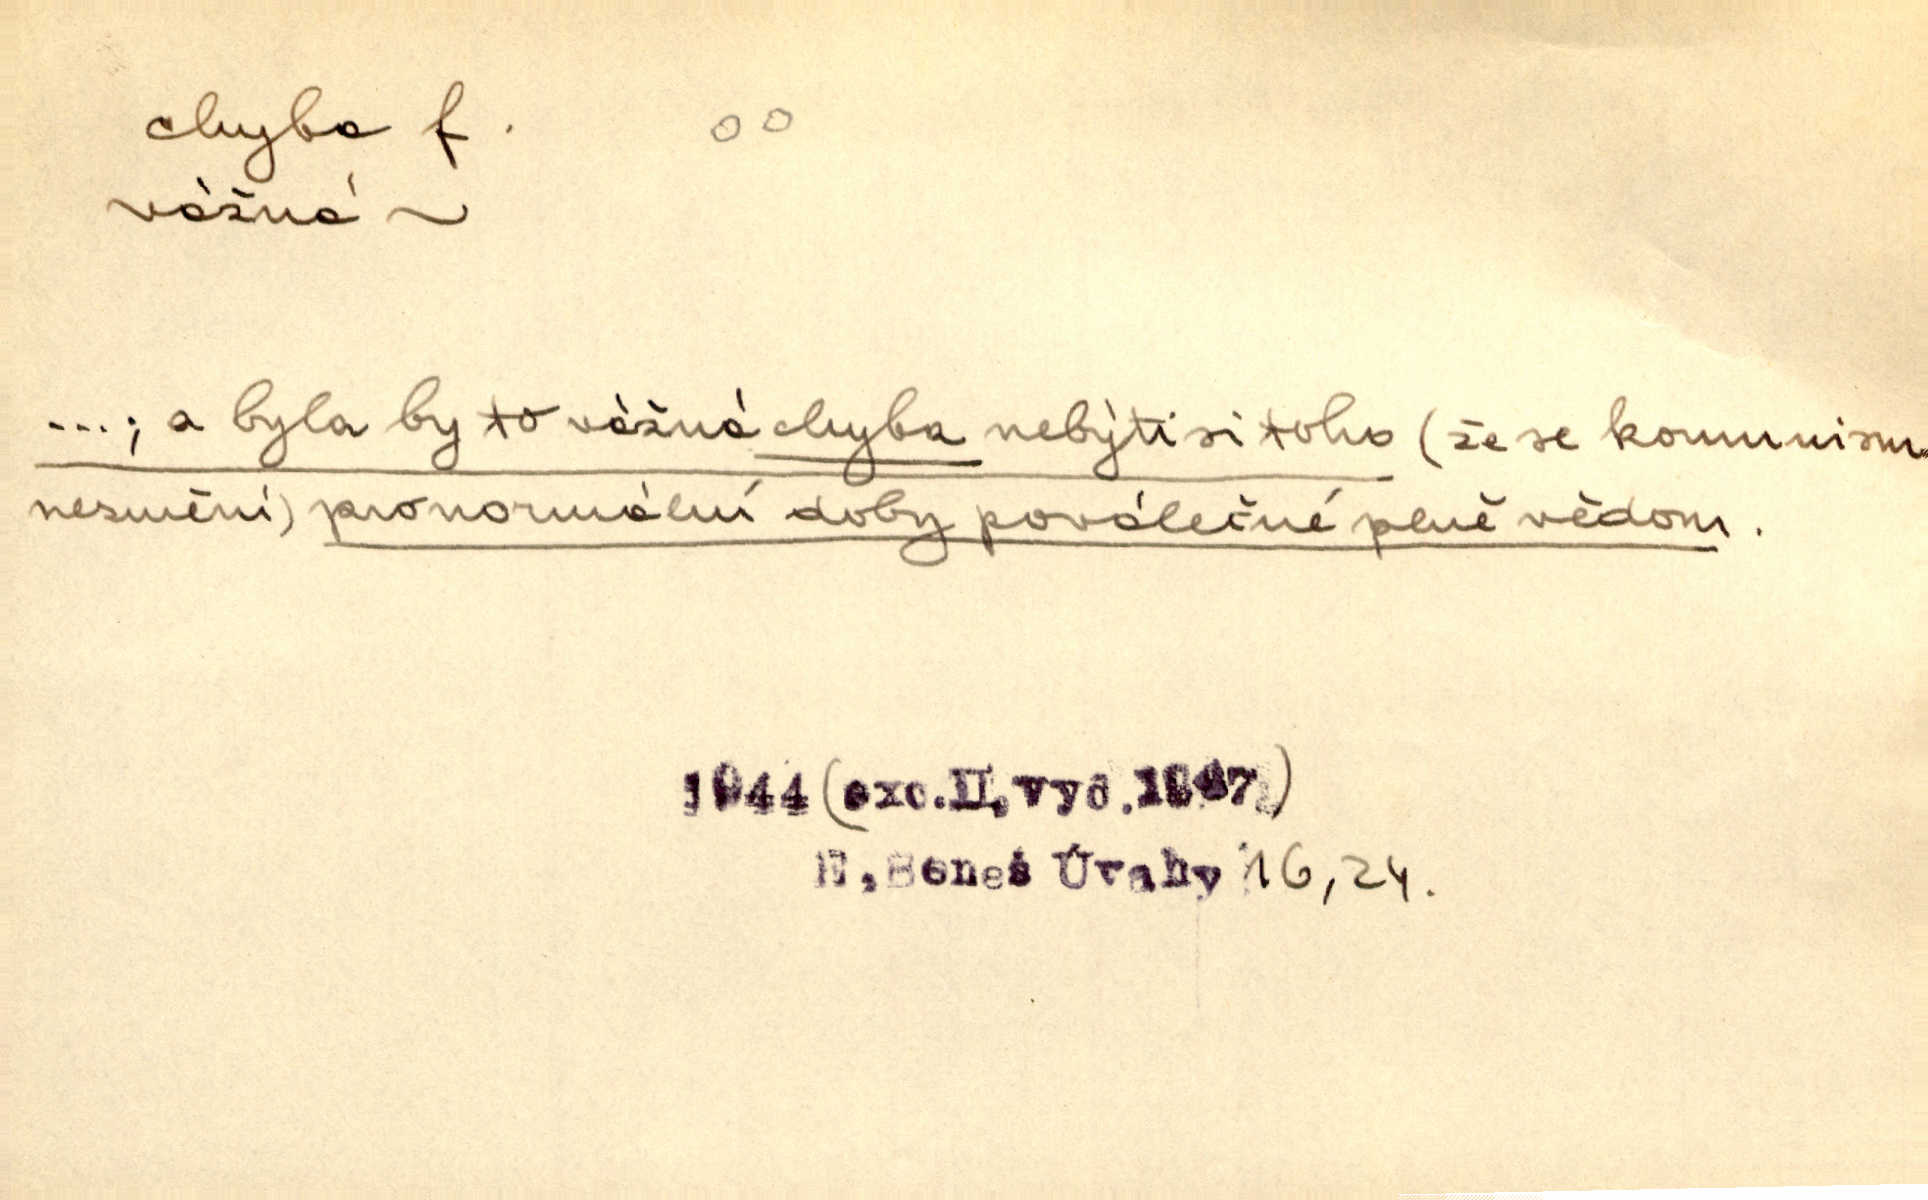 chyba f.
vážná ~
...; a byla by to vážná chyba nebýti si toho (že se komunism
nezmění) pro normální doby poválečné plně vědom.
1944 (exc. II, vyd. 1947)
E. Beneš Úvahy 16, 24.